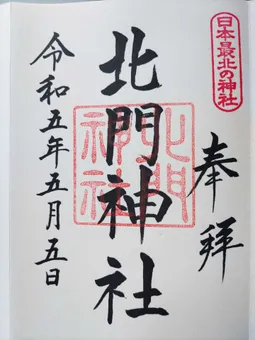 日本最北の神社
奉拜
北門神社
北門神社
令和五年五月五日